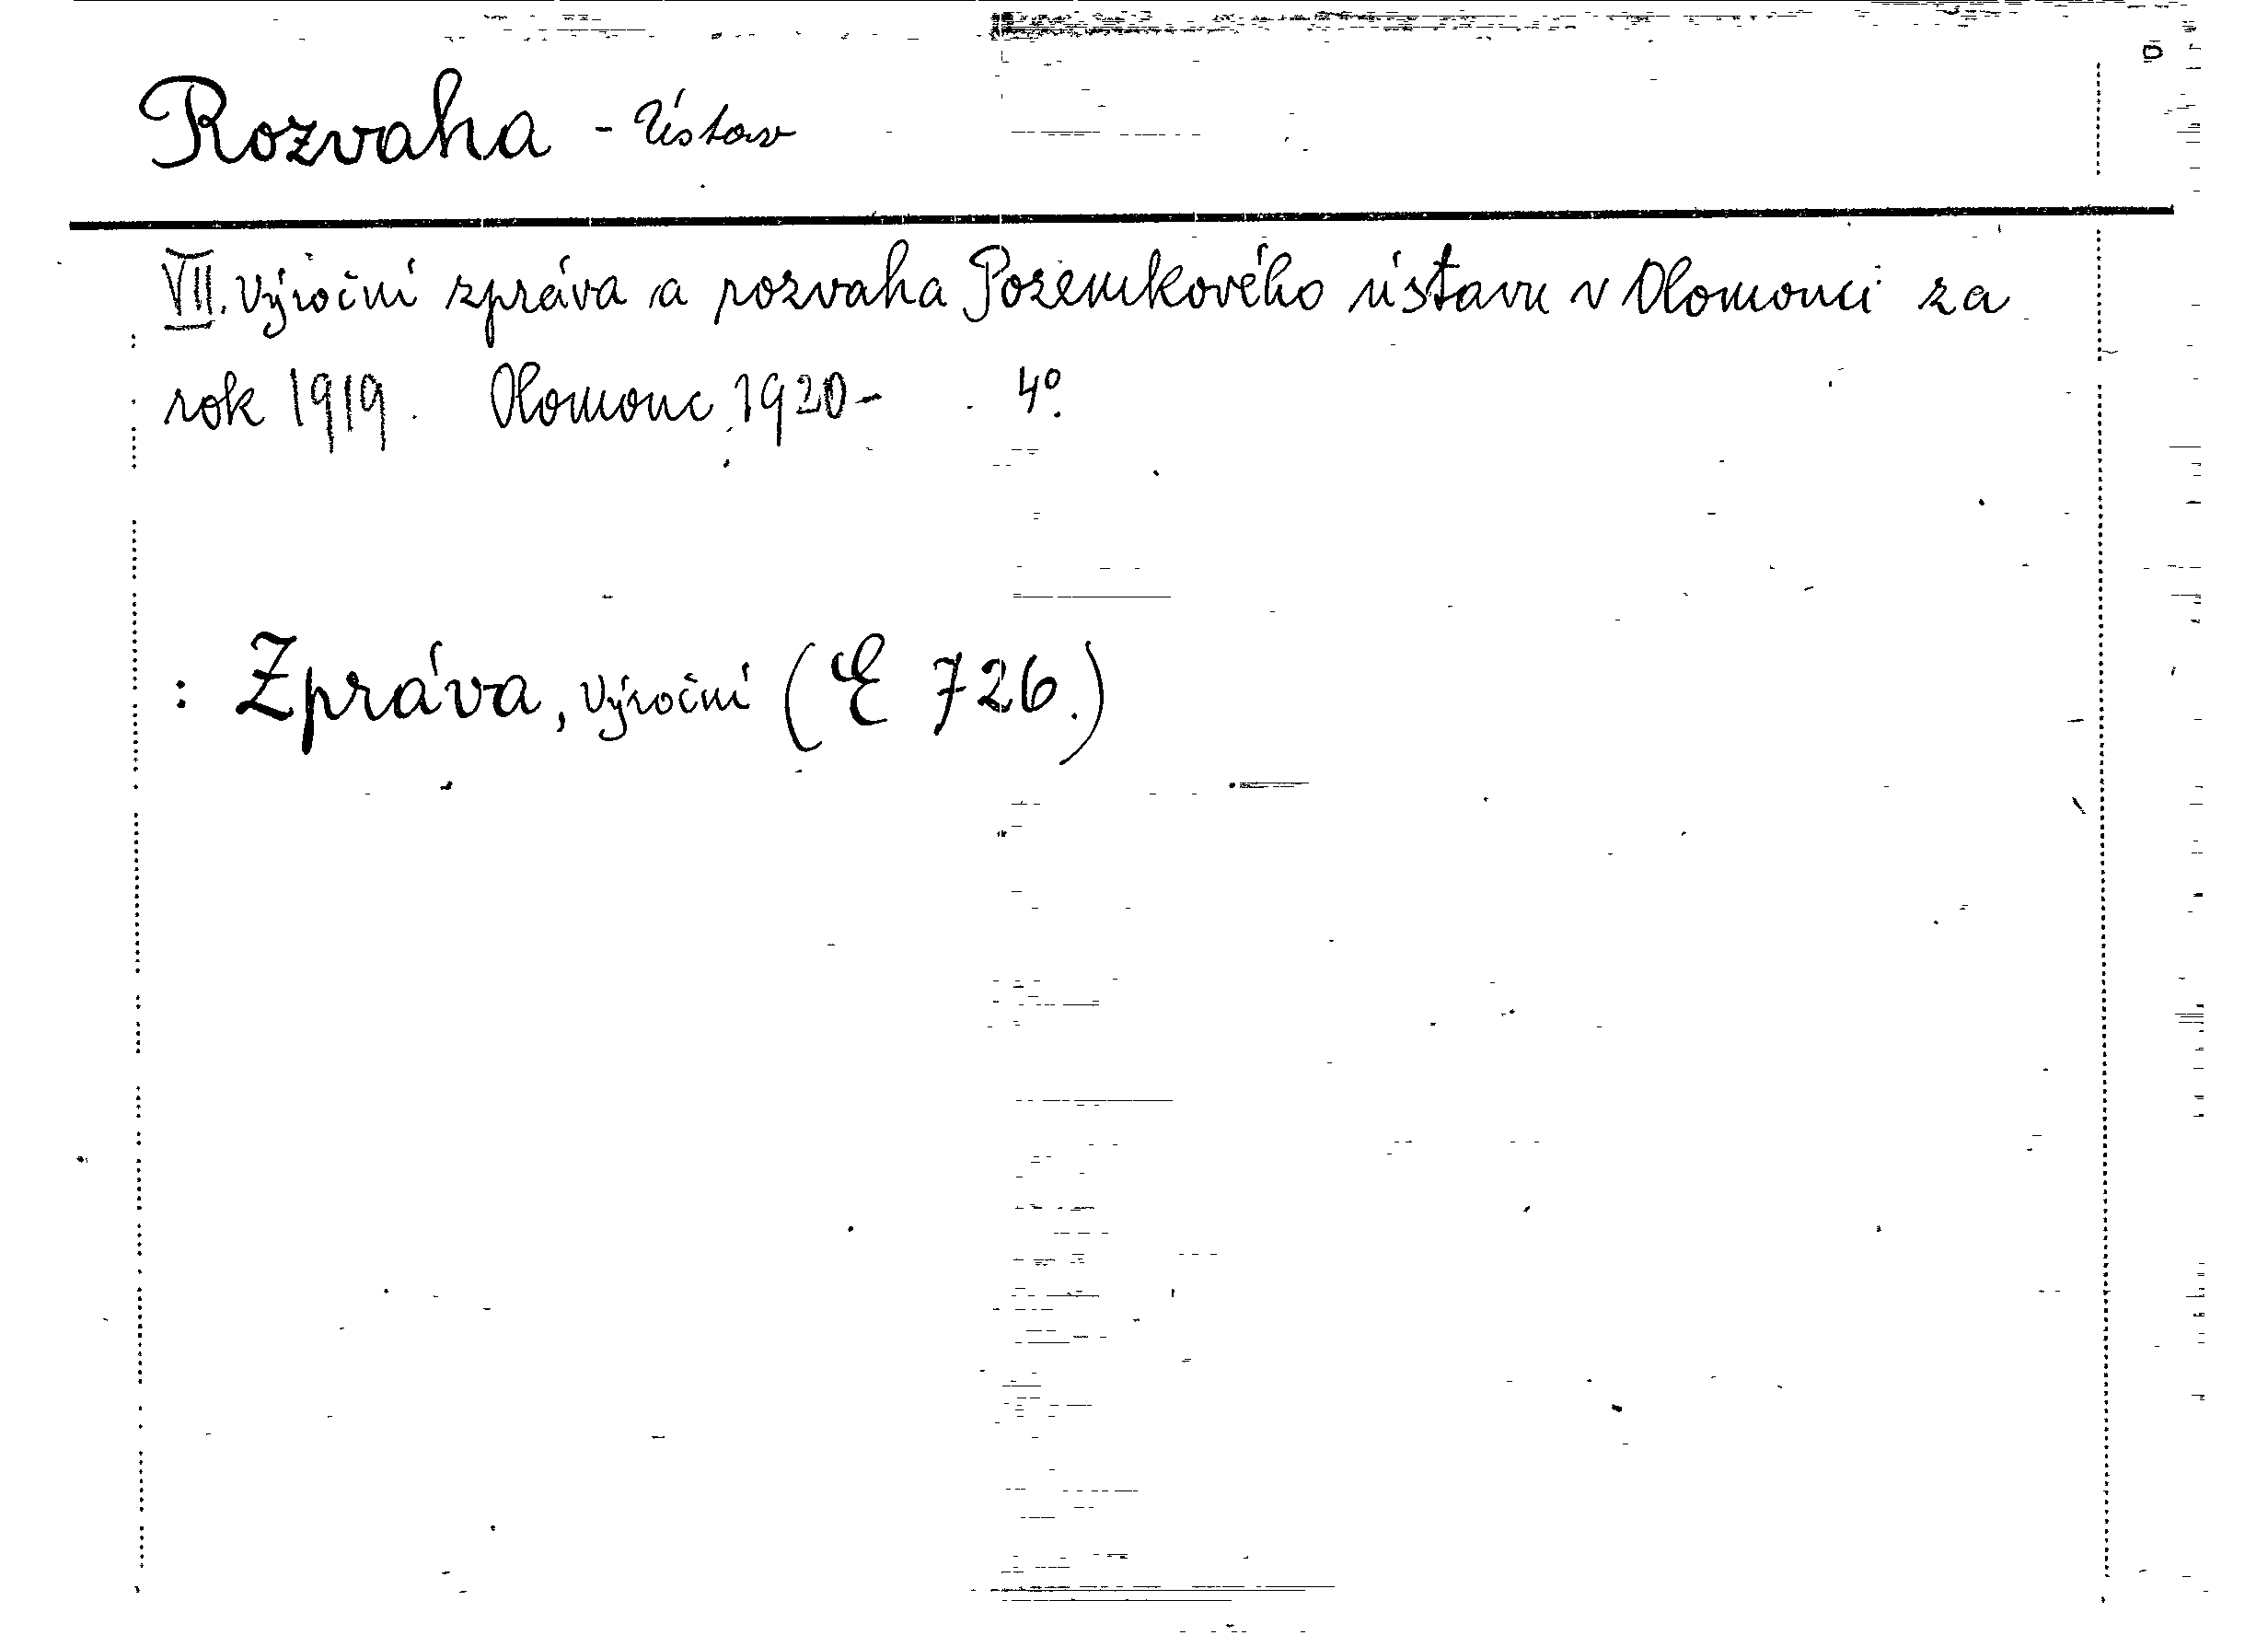 Rozvaha - Ústav
VII. Výroční zpráva a rozvaha Pozemkového ústavu v Olomouci za
rok 1919. Olomouc, 1920- . 4°.
: Zpráva, Výroční (E 726.)